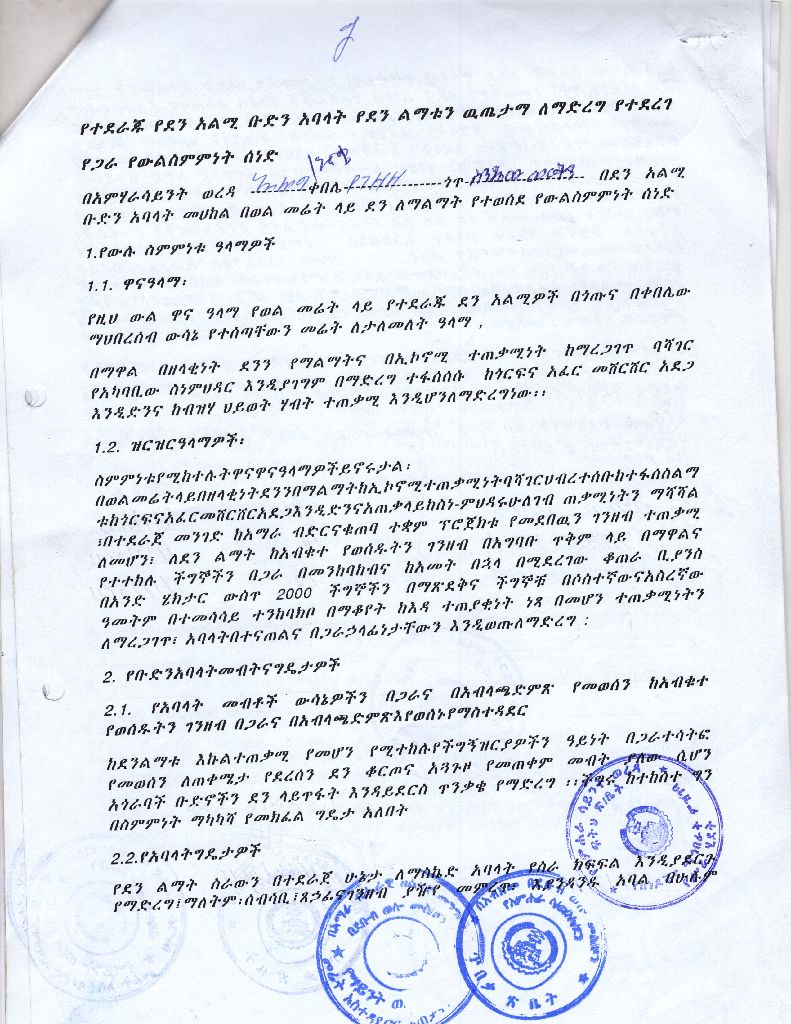 የተደራጁ የደን አልሚ ቡድን አባላት የደን ልማቱን ዉጤታማ ለማድረግ የተደረገ
የጋራ የውልስምምነት ሰነድ
በአምሃራሳይንት ወረዳ ቀበሌ ጎጥ በደን አልሚ
ቡድን አባላት መሀከል በወል መሬት ላይ ደን ለማልማት የተወሰደ የውልስምምነት ሰነድ
1.የውሉ ስምምነቱ ዓላማዎች
1.1. ዋናዓላማ፡
የዚህ ውል ዋና ዓላማ የወል መሬት ላይ የተደራጁ ደን አልሚዎች በጎጡና በቀበሌው
ማህበረሰብ ውሳኔ የተሰጣቸውን መሬት ለታለመለት ዓላማ ,
በማዋል በዘላቂነት ደንን የማልማትና በኢኮኖሚ ተጠቃሚነት ከማረጋገጥ ባሻገር
የአካባቢው ስነምህዳር እንዲያገግም በማድረግ ተፋሰሱ ከጎርፍና አፈር መሸርሸር አደጋ
እንዲድንና ከብዝሃ ሀይወት ሃብት ተጠቃሚ እንዲሆንለማድረግነው፡፡
1.2. ዝርዝርዓላማዎች፡
ስምምነቱየሚከተሉትዋናዋናዓላማዎችይኖሩታል፡
በወልመሬትላይበዘላቂነትደንንበማልማትከኢኮኖሚተጠቃሚነትባሻገርሀብረተሰቡከተፋሰስልማ
ቱከጎርፍናአፈርመሸርሸርአደጋእንዲድንናአጠቃላይከስነ-ምህዳሩሁለገብ ጠቃሚነትን ማሻሻል
፤በተደራጀ መንገድ ከአማራ ብድርናቁጠባ ተቋም ፕሮጀክቱ የመደበዉን ገንዘብ ተጠቃሚ
ለመሆን፤ ለደን ልማት ከአብቁተ የወሰዱትን ገንዘብ በአግባቡ ጥቅም ላይ በማዋልና
የተተከሉ ችግኞችን በጋራ በመንከባከብና ከአመት በኋላ በሚደረገው ቆጠራ ቢያንስ
በአንድ ሄክታር ውስጥ 2000 ችግኞችን በማጽደቅና ችግኞቹ በሶስተኛውናአስረኛው
ዓመትም በተመሳሳይ ተንከባክቦ በማቆየት ከእዳ ተጠያቂነት ነጻ በመሆን ተጠቃሚነትን
ለማረጋገጥ፤ አባላትበተናጠልና በጋራኃላፊነታቸውን እንዲወጡለማድረግ ፡
2. የቡድንአባላትመብትናግዴታዎች
2.1. የአባላት መብቶች ውሳኔዎችን በጋራና በአብላጫድምጽ የመወሰን ከአብቁተ
የወሰዱትን ገንዘብ በጋራና በአብላጫድምጽእየወሰኑየማስተዳደር
ከደንልማቱ እኩልተጠቃሚ የመሆን የሚተከሉየችግኝዝርያዎችን ዓይነት በጋራተሳትፎ
የመወሰን ለጠቀሜታ የደረሰን ደን ቆርጦና አጓጉዞ የመጠቀም መብት ያለው ሲሆን
አጎራባች ቡድኖችን ደን ላይጥፋት እንዳይደርስ ጥንቃቄ የማድረግ ፡፡ችግሩ ከተከሰተ ግን
በስምምነት ማካካሻ የመክፈል ግዴታ አለበት
2.2.የአባላትግዴታዎች
የደን ልማት ስራውን በተደራጀ ሁኔታ ለማስኬድ አባላት የስራ ክፍፍል እንዲያደርጉ
የማድረግ፤ማለትም፡ሰብሳቢ፤ጸኃፊናገንዘብ ያዥየ መምረጥ፡ እያንዳንዱ አባል በሁሉም